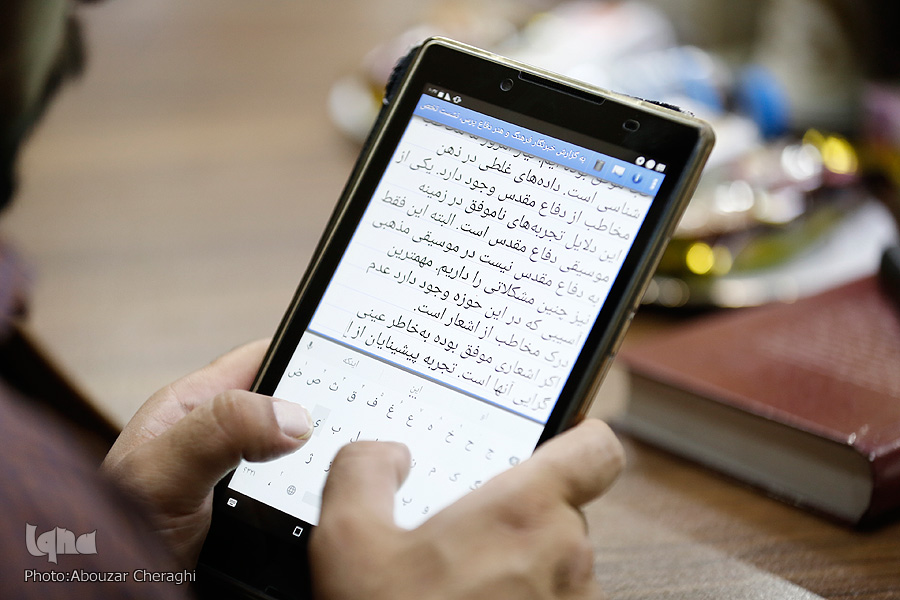 به گزارش خبرنگار فرهنگ و هنر دفاع پرس، نشست تخص
شناسی است. داده‌های غلطی در ذهن
مخاطب از دفاع مقدس وجود دارد. یکی از
این دلایل تجربه‌های ناموفق در زمینه
موسیقی دفاع مقدس است. البته این فقط
به دفاع مقدس نیست در موسیقی مذهبی
نیز چنین مشکلاتی را داریم. مهمترین
آسیبی که در این حوزه وجود دارد عدم
درک مخاطب از اشعار است.
اگر اشعاری موفق بوده به‌خاطر عینی
گرایی آنها است. تجربه پیشینیان از
از این اینکه
ض ص ث ق ف غ ع ه خ ح ج
iqna
Photo:Abouzar Cheraghi